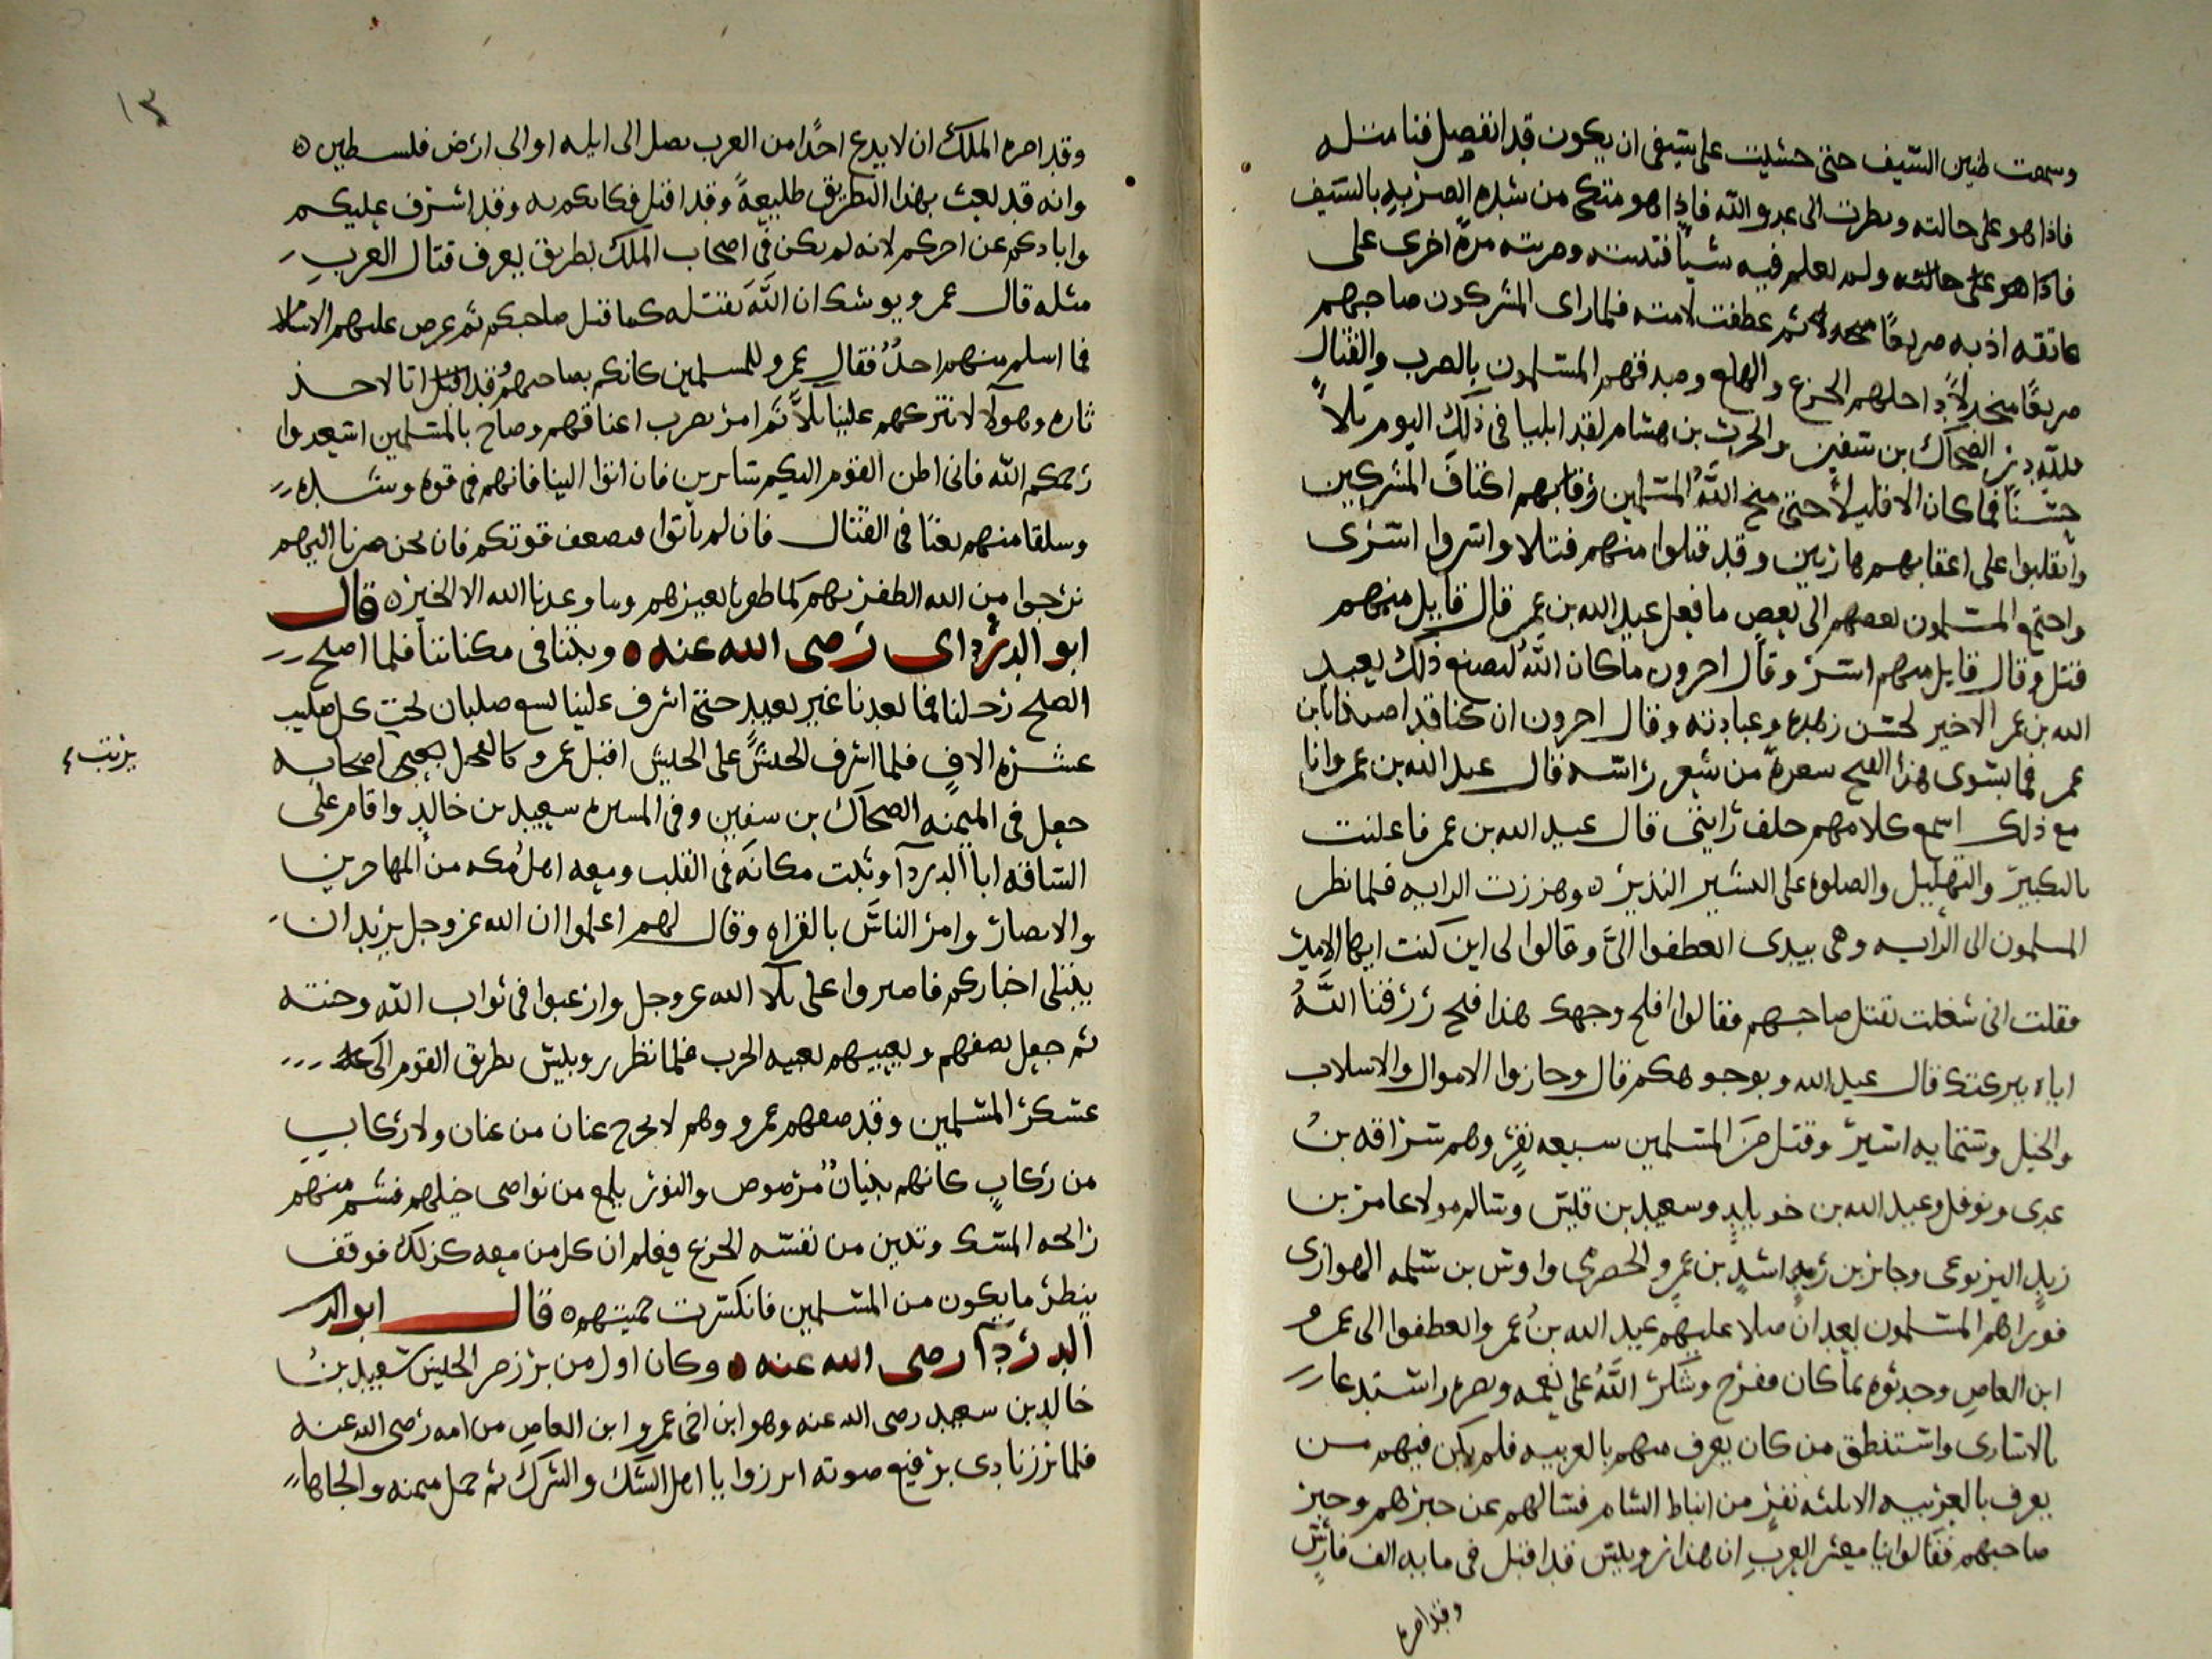 وسمعت طنين السيف حتى خشيت على سيفى ان يكون قد انفصل فتاملته
فاذا هو على حالته ونظرت الى عدو الله فاذا هو متكى من شده الضربه بالسيف
فاذا هو على حالته ولم يعلم فيه شيا فثنيته وضربته مرة اخرى على
عاتقه اذ به صريعا منجدلا ثم عطفت لامته فلما راى المشركون صاحبهم
صريعًا منجدلاً داخلهم الجزع والهلع وصدقهم المسلمون بالضرب والقتال
فلله در الضحاك بن سفين والحرث بن هشام لقد ابليا فى ذلك اليوم بلاً
حسنًا فما كان الا قليلاً حتى منح الله المسلمين رقابهم اكتاف المشركين
وانقلبوا على اعقابهم هاربين وقد قتلوا منهم قتلا واسروا اسرى
واجتمع المسلمون بعضهم الى بعض ما فعل عبد الله بن عمر قال قايل منهم
قتل وقال قايل منهم اسر وقال اخرون ما كان الله ليصنع ذلك بعبد
الله بن عمر الا خير لحسن زهده وعبادته وقال اخرون ان كنا قد اصبنا بابن
عمر فما يسوى هذا الفتح شعرة من شعر راسه قال عبد الله بن عمر وانا
مع ذلك اسمع كلامهم خلف رايتى قال عبد الله بن عمر فاعلنت
بالتكبير والتهليل والصلوه على البشير النذير ه وهززت الرايه فلما نظر
المسلمون الى الرايه وهى بيدى انعطفوا الىّ وقالوا لى اين كنت ايها الامير
فقلت انى شغلت بقتل صاحبهم فقالوا افلح وجهك هذا فتح رزقنا اللهُ
اياه ببركتك قال عبد الله وبوجوهكم قال وحازوا الاموال والاسلاب
والخيل وستمايه اسير وقتل من المسلمين سبعه نفر وهم سراقه بنُ
عدى ونوفل وعبد الله بن خويلد وسعيد بن قيس وسالم مولا عامر بن
زيد اليربوعى وجابر بن راشد بن عمرو الحضرمى واوس بن سلمه الهوازى
فواراهم المسلمون بعد ان صلا عليهم عبد الله بن عمر وانعطفوا الى عمرو
ابن العاص وحدثوه بما كان ففرح وشكر اللهُ على نعمه ونصره واستدعا
بالاسارى واستنطق من كان يعرف منهم بالعربيه فلم يكن فيهم مـن
يعرف بالعربيه الا ثلثه نفر من انباط الشام فسالهم عن خبرهم وخبر
صاحبهم فقالوا يا معشر العرب ان هذا روبيس قد اقبل فى مايه الف فارس
وقد امره
١٣
وقد امره الملك ان لا يدع احدًا من العرب يصل الى ايله او الى ارض فلسطين ه
وانه قد بعث بهذا البطريق طليعةً وقد اقتل فكانكم به وقد اشرف عليكم
وابادكم عن اخركم لانه لم يكن فى اصحاب الملك بطريق يعرف قتال العرب
مثله قال عمرو يوشك ان الله يقتله كما قتل صاحبكم ثم عرض عليهم الاسلا
فما اسلم منهم احدٌ فقال عمرو للمسلمين كانكم بصاحبهم قد اقبل اتا لاخذ
ثاره وهولا لا نتركهم علينا بلاً ثم امر بضرب اعناقهم وصاح بالمسلمين استعدوا
رحمكم الله فانى اظن القوم اليكم سايرين فان اتوا الينا فانهم فى قوه وشده
وسلقا منهم تعبًا فى القتال فان لم ياتوا فضعف قوتكم فان نحن صرنا اليهم
نرجوا من الله الظفر بهم كما ظفرنا بغيرهم وما وعدنا الله الا الخير ه قال
ابو الدرداى رضى الله عنه ه وبتنا فى مكاننا فلما اصلح
الصلح رحلنا فما بعدنا غير بعيد حتى اشرف علينا تسع صلبان تحت كل صليب
عشره الاف فلما اشرف الجيش على الجيش اقبل عمرو كالفحل يعبى اصحابه
يرتب
جعل فى الميمنه الضحاك بن سفين وفى الميسره سعيد بن خالد واقام على
الساقه ابا الدردآ وثبت مكانه فى القلب ومعه اهل مكه من المهاجرين
والانصار وامر الناس بالقراه وقال لهم اعلموا ان الله عز وجل يريد ان
يبتلى اخباركم فاصبروا على بلا الله عز وجل وارغبوا فى ثواب الله وجنته
ثم جعل يصفهم ويعبيهم تعبيه الحرب فلما نظر روبيس بطريق القوم الى
عسكر المسلمين وقد صفهم عمرو وهم لا يخرج عنان من عنان ولا ركاب
من ركاب كانهم بنيانٌ مرصوص والنور يلمع من نواصى خيلهم فشم منهم
رائحه المسك وتبين من نفسه الجزع فعلم ان كل من معه كذلك فوقف
ينظر ما يكون من المسلمين فانكسرت حميتهم ه قال ابو الدر
الدردآ رضى الله عنه ه وكان اول من برز من الجيش سعيد بنُ
خالد بن سعيد رضى الله عنه وهو ابن اخى عمرو ابن العاص من امه رضى الله عنه
فلما برز نادى برفيع صوته ابرزوا يا اهل الشك والشرك ثم حمل ميمنه والجاها